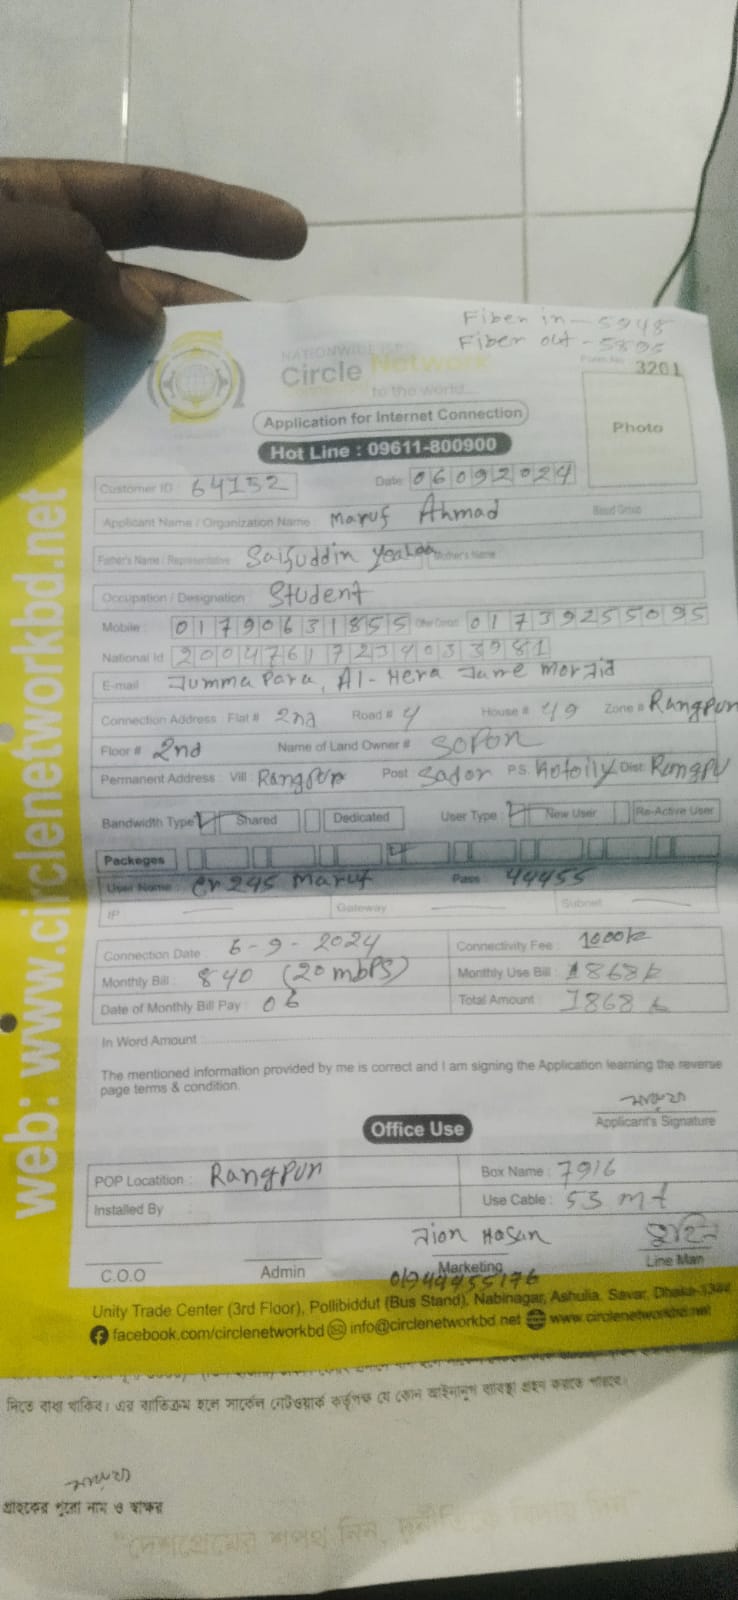 Fiber in - 5948
Fiber out - 5895
NATIONWIDE ISP
Circle Network
to the world...
Form No. 3201
Application for Internet Connection
Photo
Hot Line : 09611-800900
Customer ID : 64152 Date: 06092024
Applicant Name / Organization Name Maruf Ahmad Blood Group
Father's Name / Representative Saifuddin Mother's Name
Occupation / Designation Student
Mobile : 01790631855 01739255095
National Id
E-mail Jumma Para, Al-Hera Jame
Connection Address : Flat # 2nd Road # 4 House # 49 Zone # Rangpur
Floor # 2nd Name of Land Owner # Sopon
Permanent Address : Vill Rangpur Post Sador P.S. Dist.
Bandwidth Type Shared Dedicated User Type : New User Re-Active User
Packeges
User Name : cr245 maruf Pass : 44455
IP Gateway Subnet
Connection Date : 6-9-2024 Connectivity Fee : 1000
Monthly Bill : 840 (20 mbps) Monthly Use Bill : 868
Date of Monthly Bill Pay : 06 Total Amount : 1868
In Word Amount :
The mentioned information provided by me is correct and I am signing the Application learning the reverse
page terms & condition.
Applicant's Signature
Office Use
POP Locatition : Rangpur Box Name : 7916
Installed By Use Cable : 53 mt
Hasan
C.O.O Admin Marketing Line Man
Unity Trade Center (3rd Floor), Pollibiddut (Bus Stand), Nabinagar, Ashulia, Savar, Dhaka-1344
facebook.com/circlenetworkbd info@circlenetworkbd.net www.circlenetworkbd.net
web: www.circlenetworkbd.net
দিতে বাধ্য থাকিব। এর ব্যতিক্রম হলে সার্কেল নেটওয়ার্ক কর্তৃপক্ষ যে কোন আইনানুগ ব্যবস্থা গ্রহন করতে পারবে।
গ্রাহকের পুরো নাম ও স্বাক্ষর
"দেশপ্রেমের শপথ নিন, দুর্নীতিকে বিদায় দিন"